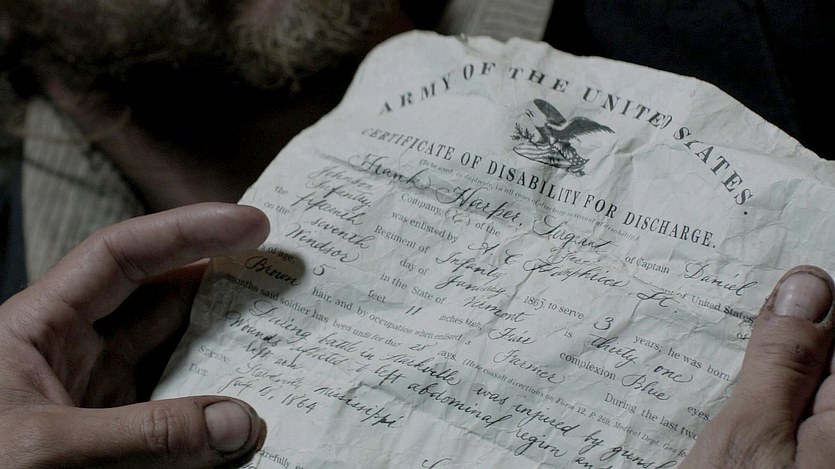 ARMY OF THE UNITED STATES.
CERTIFICATE OF DISABILITY FOR DISCHARGE.
Frank Harper, Sargent of Captain Daniel
Johnson Company, (E) of the
Infantry was enlisted by A C Humphries of
the fifteenth Regiment of Infantry of United States
on the seventh day of January 1863 to serve 3 years; he was born
Windsor in the State of Vermont is thirty one
of age, 5 feet 11 inches high, Fair complexion Blue eyes,
Brown hair, and by occupation when enlisted a Farmer During the last two
months said soldier has been unfit for duty 21 days.
During battle in Nashville was injured by
Wounds left abdominal region and
left arm
STATION: Mississippi
DATE: July 1, 1864